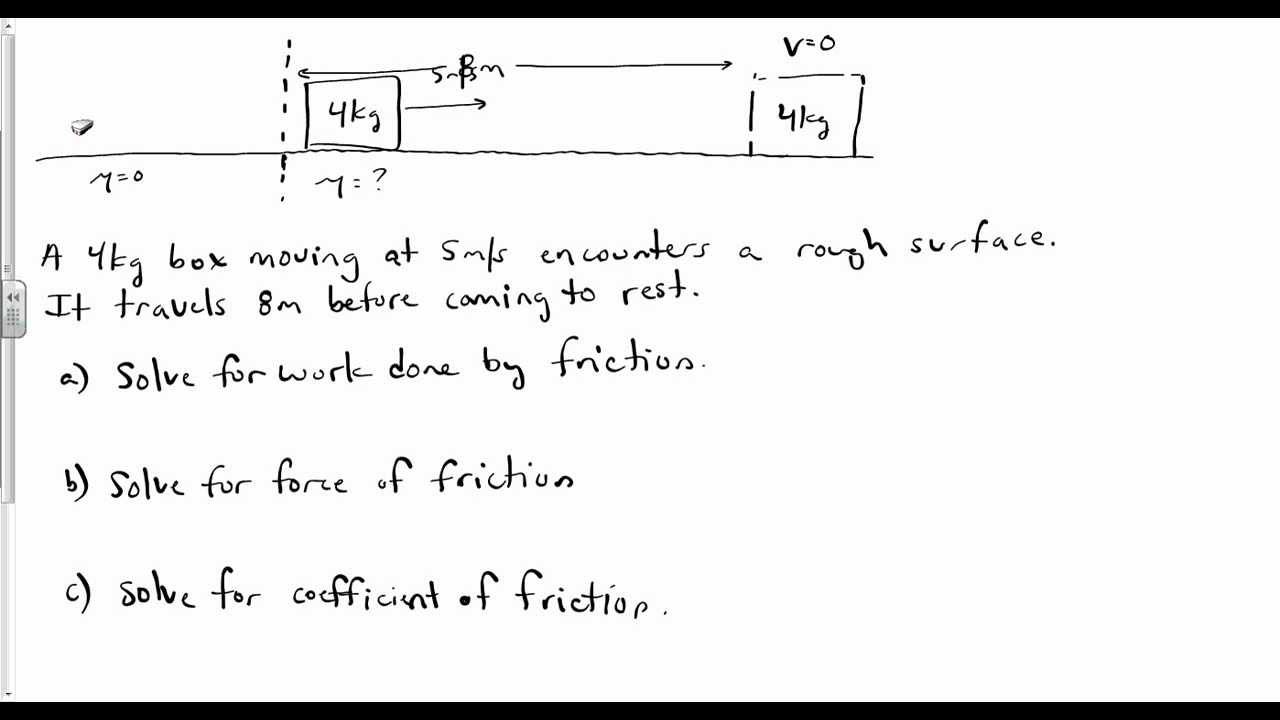 V=0
5m/s 8m
4kg
4kg
μ=0
μ=?
A 4kg box moving at 5m/s encounters a rough surface.
It travels 8m before coming to rest.
a) Solve for work done by friction.
b) Solve for force of friction
c) Solve for coefficient of friction.